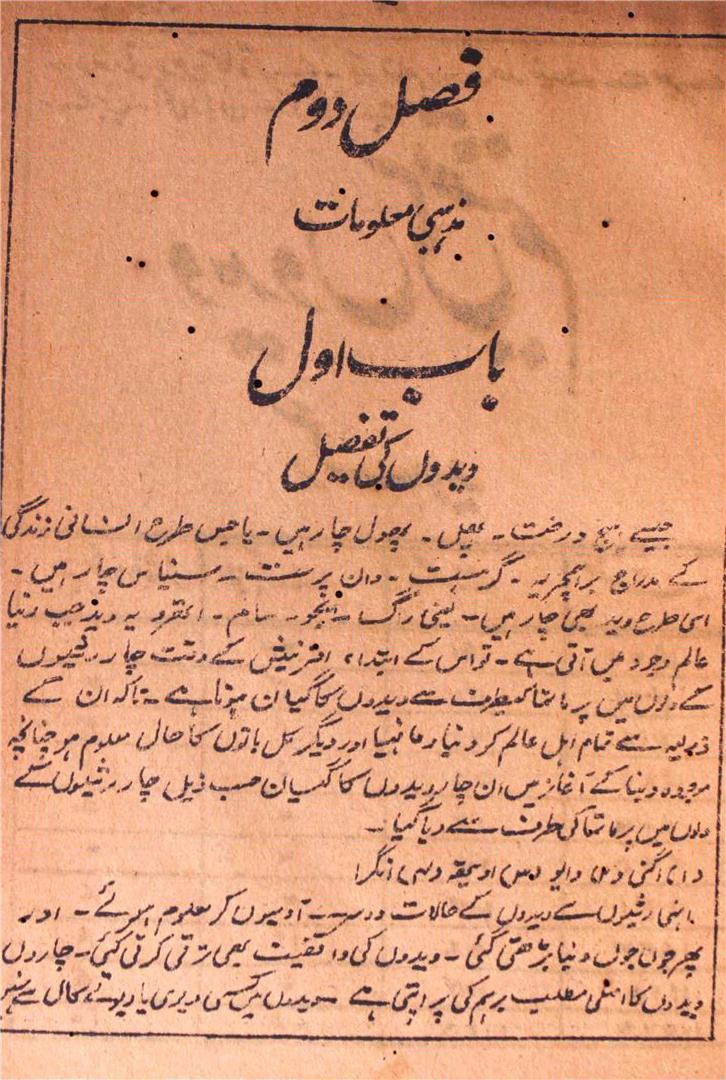 فصل دوم
مذہبی معلومات
باب اول
ویدوں کی تفصیل
جیسے بیج درخت ۔ پھل ۔ پھول چار ہیں ۔ یا جس طرح انسانی زندگی
کے مدارج برہمچریہ ۔ گرہست ۔ وان پرست ۔ سنیاس چار ہیں ۔
اسی طرح وید بھی چار ہیں ۔ یعنی رگ ۔ یجور ۔ سام ۔ اتھرو یہ وید جب دنیا
عالم وجود میں آتی ہے ۔ تو اس کے ابتداء آفرنیش کے وقت چار رشیوں
کے دلوں میں پرماتما کیطرف سے ویدوں کا گیان ہوتا ہے ۔ تاکہ ان کے
ذریعہ سے تمام اہل عالم کو دنیا و مافیہا اور دیگر کل باتوں کا حال معلوم ہو چنانچہ
موجودہ دنیا کے آغاز میں ان چار ویدوں کا گیان حسب ذیل چار رشیوں کے
دلوں میں پرماتما کی طرف سے دیا گیا ۔
(۱) اگنی (۲) وایو (۳) (۴) انگرا
انہی رشیوں سے ویدوں کے حالات دوسرے آدمیوں کو معلوم ہوئے ۔ اور
پھر جوں جوں دنیا بڑھتی گئی ۔ ویدوں کی واقفیت بھی ترقی کرتی گئی ۔ چاروں
ویدوں کا اصلی مطلب برہم کی پراپتی ہے ویدوں میں کسی دیوی یا دیوتا